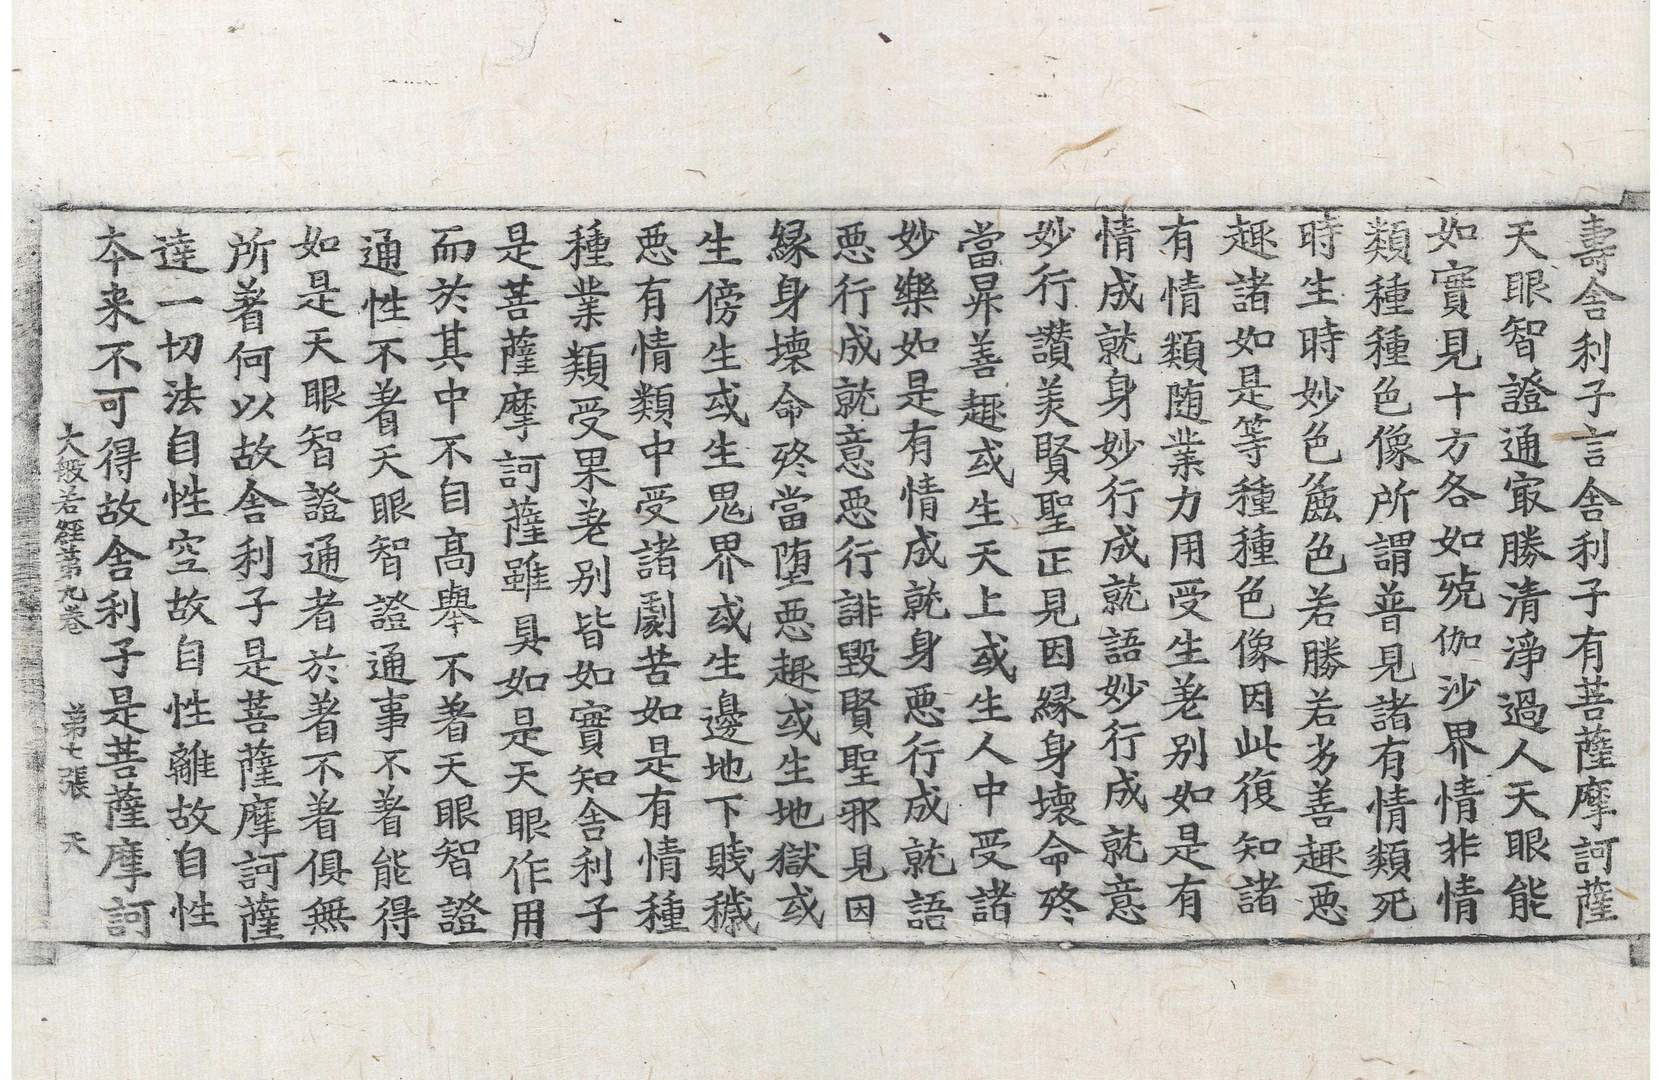 壽舍利子言舍利子有菩薩摩訶薩
天眼智證通㝡勝清淨過人天眼能
如實見十方各如殑伽沙界情非情
類種種色像所謂普見諸有情類死
時生時妙色麁色若勝若劣善趣惡
趣諸如是等種種色像因此復知諸
有情類随業力用受生差别如是有
情成就身妙行成就語妙行成就意
妙行讃美賢聖正見因縁身壞命終
當昇善趣或生天上或生人中受諸
妙樂如是有情成就身惡行成就語
惡行成就意惡行誹毀賢聖邪見因
縁身壞命終當堕惡趣或生地獄或
生傍生或生鬼界或生邊地下賤穢
惡有情類中受諸劇苦如是有情種
種業類受果差别皆如實知舍利子
是菩薩摩訶薩雖具如是天眼作用
而於其中不自高舉不著天眼智證
通性不著天眼智證通事不著能得
如是天眼智證通者於著不著俱無
所著何以故舍利子是菩薩摩訶薩
達一切法自性空故自性離故自性
本来不可得故舍利子是菩薩摩訶
大般若經第九卷 第七張 天